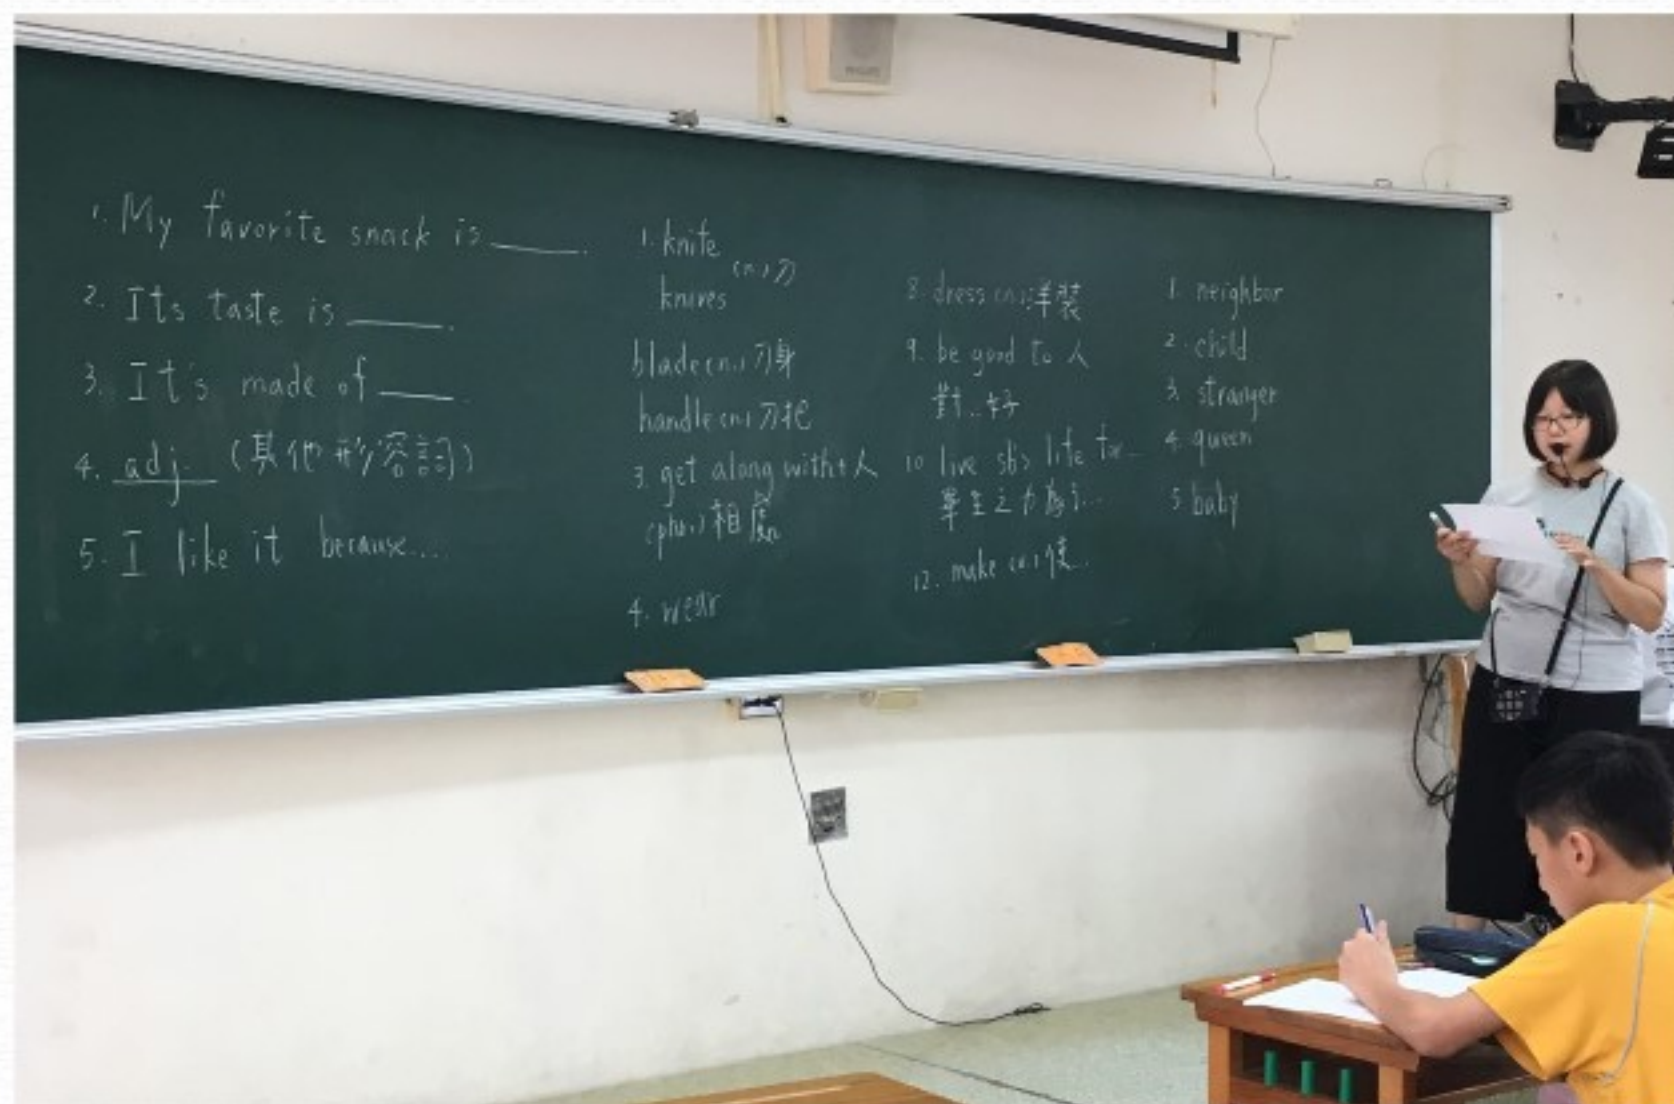 1. My favorite snack is ____.
2. Its taste is ____.
3. It's made of ____.
4. adj. (其他形容詞)
5. I like it because....
1. knife
(n.) 刀
knives
blade (n.) 刀身
handle (n.) 刀把
3. get along with + 人
(phr.) 相處
4. wear
8. dress (n.) 洋裝
9. be good to 人
對..好
10 live sb's life for...
畢生之力為了...
12. make (v.) 使...
1. neighbor
2. child
3. stranger
4. queen
5. baby
PHILIPS